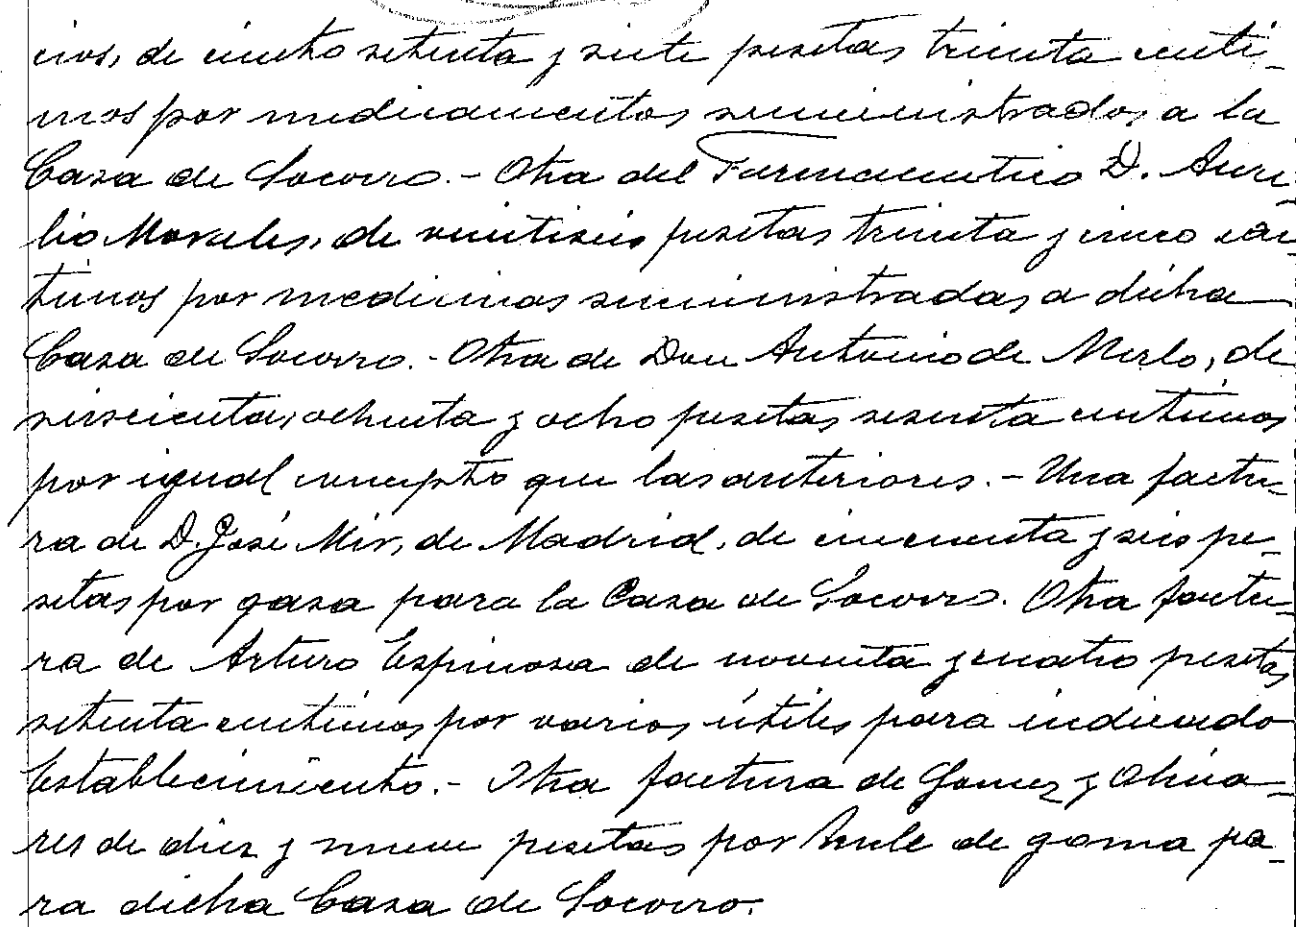 cios, de ciento setenta y siete pesetas treinta centi-
mos por medicamentos suministrados a la
Casa de Socorro.- Otra del Farmaceutico D. Aure-
lio Morales, de veintiseis pesetas treinta y cinco cen-
timos por medicinas suministradas a dicha
Casa de Socorro.- Otra de Don Antonio de Merlo, de
seiscientas ochenta y ocho pesetas sesenta centimos
por igual concepto que las anteriores.- Una factu-
ra de D. José Mir, de Madrid, de cincuenta y seis pe-
setas por gasa para la Casa de Socorro. Otra factu-
ra de Arturo Espinosa de noventa y cuatro pesetas
setenta centimos por varios útiles para indicado
Establecimiento.- Otra factura de Gomez y Oliva-
res de diez y nueve pesetas por hule de goma pa-
ra dicha Casa de Socorro.